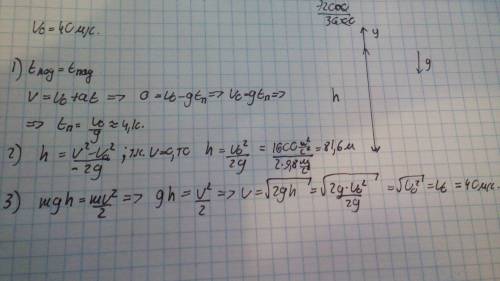 V₀ = 40 м/с.
y
g
h
1) tпод = tпад
V = V₀ + at => 0 = V₀ - gtп => V₀ = gtп =>
=> tп = V₀/g ≈ 4,1с.
2) h = (V² - V₀²)/(-2g) ; т.к. V=0, то h = V₀²/2g = (1600 м²/с²)/(2·9,8 м/с²) = 81,6 м
3) mgh = mV²/2 => gh = V²/2 => V = √(2gh) = √(2g·V₀²/2g) = √(V₀²) = V₀ = 40 м/с.